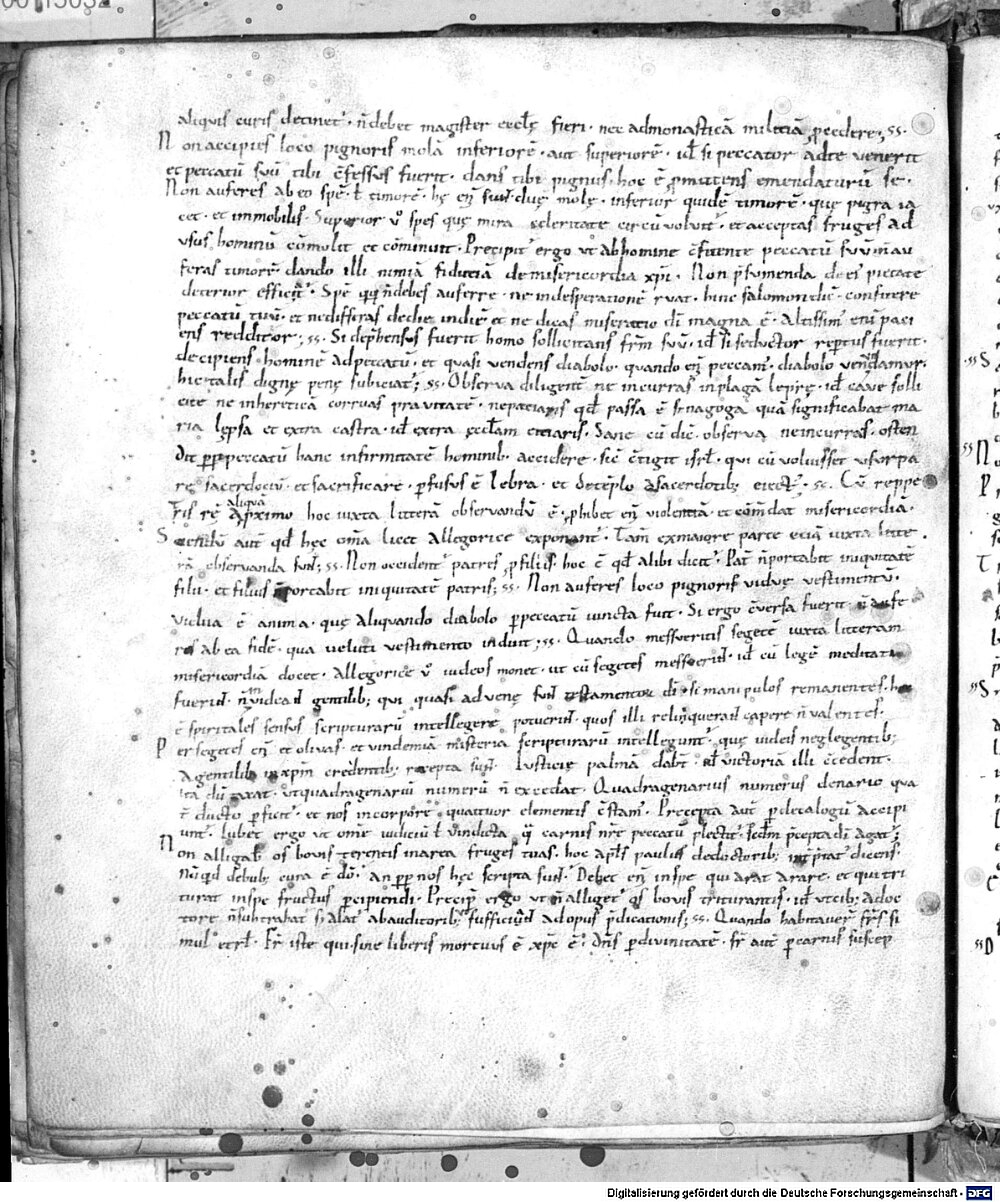 aliquis curis detinet᷑ · n̄ debet magister eccl̄ę fieri · nec admonasticā militiā ꝓcedere; ss·
Non accipies loco pignoris molā inferiorē · aut superiorē · id ÷ si peccator adte venerit
et peccatū suū tibi c̄fessus fuerit · dans tibi pignus · hoc ē ꝓmittens emendaturū se ·
Non auferes ab eo spē · ł timorē · hę eñ sunt duę molę · inferior quidē timorē · quę pigra ia
cet · et immobilis · Superior v̊ spes quę mira celeritate circūvoluit᷑ · et acceptas fruges ad
usus hominū cōmolit et cōminuit · Precipit ergo ut ab homine c̄fitente peccatū suū n̄ au
feras timorē dando illi nimiā fiduciā de misericordia xp̄i · Non p̄sumenda
deterior efficit᷑ · Spē qq; n̄ debes auferre · ne indesperationē ruat · hinc salomon dic̄ · confitere
peccatū tuū · et nedifferas dedie indiē et ne dicas miseratio dī magna ē · Altissim᷒ eñ paci
ens redditor; ss· Si dep̄hensus fuerit homo sollicitans fr̄m suū · id si seductor rep̄tus fuerit ·
decipiens hominē adpeccatū · et quasi vendens diabolo · quando eñ peccam᷒ · diabolo vendamur ·
hic talis dignę penę subiciat᷑; ss· Observa diligent᷑ ne incurras inplagā leprę · id cave solli
cite ne inhereticā corruas pravitatē · nepatiaris qđ passa ē sinagoga quā significabat ma
ria lep̄sa et extra castra · id extra eccl̄am eiciaris · Sane cū dic̄ · observa ne incurras · osten
dit ꝓpt peccatū hanc infirmitatē hominib; accidere · sic̄ c̄tigit isrl̄ · qui cū voluisset usurpa
re sacerdociū · et sacrificare · ꝑfusus ē lebra · et detēplo asacerdotib; eiect᷒ · ss· Cū reppe
tis rē aliquā Aproximo hoc iuxta litterā observandū ē · ꝓhibet eñ violentiā · et cōm̄dat misericordiā ·
Sciendū aut̄ qđ hęc om̄a licet Allegorice exponant᷑ · Tam̄ exmaiore parte eciā iuxta litte
rā observanda sunt; ss· Non occident᷑ patres ꝓ filiis · hoc ē qđ alibi dicit᷑ · Pat᷑ n̄portabit iniquitatē
filii · et filius n̄portabit iniquitatē patris; ss· Non auferes loco pignoris viduę vestimentū ·
Vidua ē anima · quę Aliquando diabolo ꝑpeccatū iuncta fuit · Si ergo c̄versa fuerit n̄ aufe
res ab ea fidē · qua veluti vestimento induit᷑; ss· Quando messueritis segetē iuxta litteram
misericordiā docet · Allegorice v̊ iudeos monet · ut cū segetes messuerint · id cū legē meditati
fuerint · n̄ invideant gentilib; qui quasi advenę sunt testamentor̄ dī · si manipulos remanentes · hoc
ē spiritales sensus scripturarū intellegere potuerint · quos illi relinquerant capere n̄ valentes ·
Per segetes eñ et olivas · et vindemiā misteria scripturarū intellegunt᷑ · quę iudeis neglegentib;
Agentilib; inxp̄m credentib; recepta sunt · Iusticię palmā dabt̄ · victoria illi ccedent ·
ita dū taxat · ut quadragenariū numerū n̄ excedat · Quadragenarius numerus denario qua
t̄ ducto ꝑficit᷑ · et nos incorpore quattuor elementis c̄stam᷒ · Precepta aut̄ ꝑ decalogū accipi
unt᷑ · Iubet᷑ ergo ut om̄e iudiciū ł vindicta q̄ carnis nr̄ę peccatū plectit᷑ · scdm p̄cepta dī agat᷑;
Non alligab᷒ os bovis terentis inarea fruges tuas · hoc apl̄s paulus dedoctorib; int̄p̄tat᷑ dicens ·
Nūqđ debub; cura ē dō · an ꝓpt nos hęc scripta sunt · Debet eñ inspe qui arat arare · et qui tri
turat inspe fructus ꝑcipiendi · Precip̄ ergo ut n̄ alliget᷑ os bovis triturantis · id ut cib; adoc
tore n̄ subtrahat᷑ abauditorib; sufficiunt adopus p̄dicationis; ss· Quando habitaver̄ fr̄s si
mul etrl̄ · Fr̄ iste qui sine liberis mortuus ē xp̄c ē · dn̄s ꝑdivinitatē · fr̄ aut̄ ꝑcarnis suscep